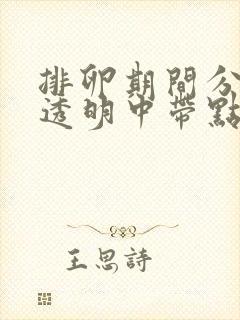 排卵期間分
透明中帶點
王思詩